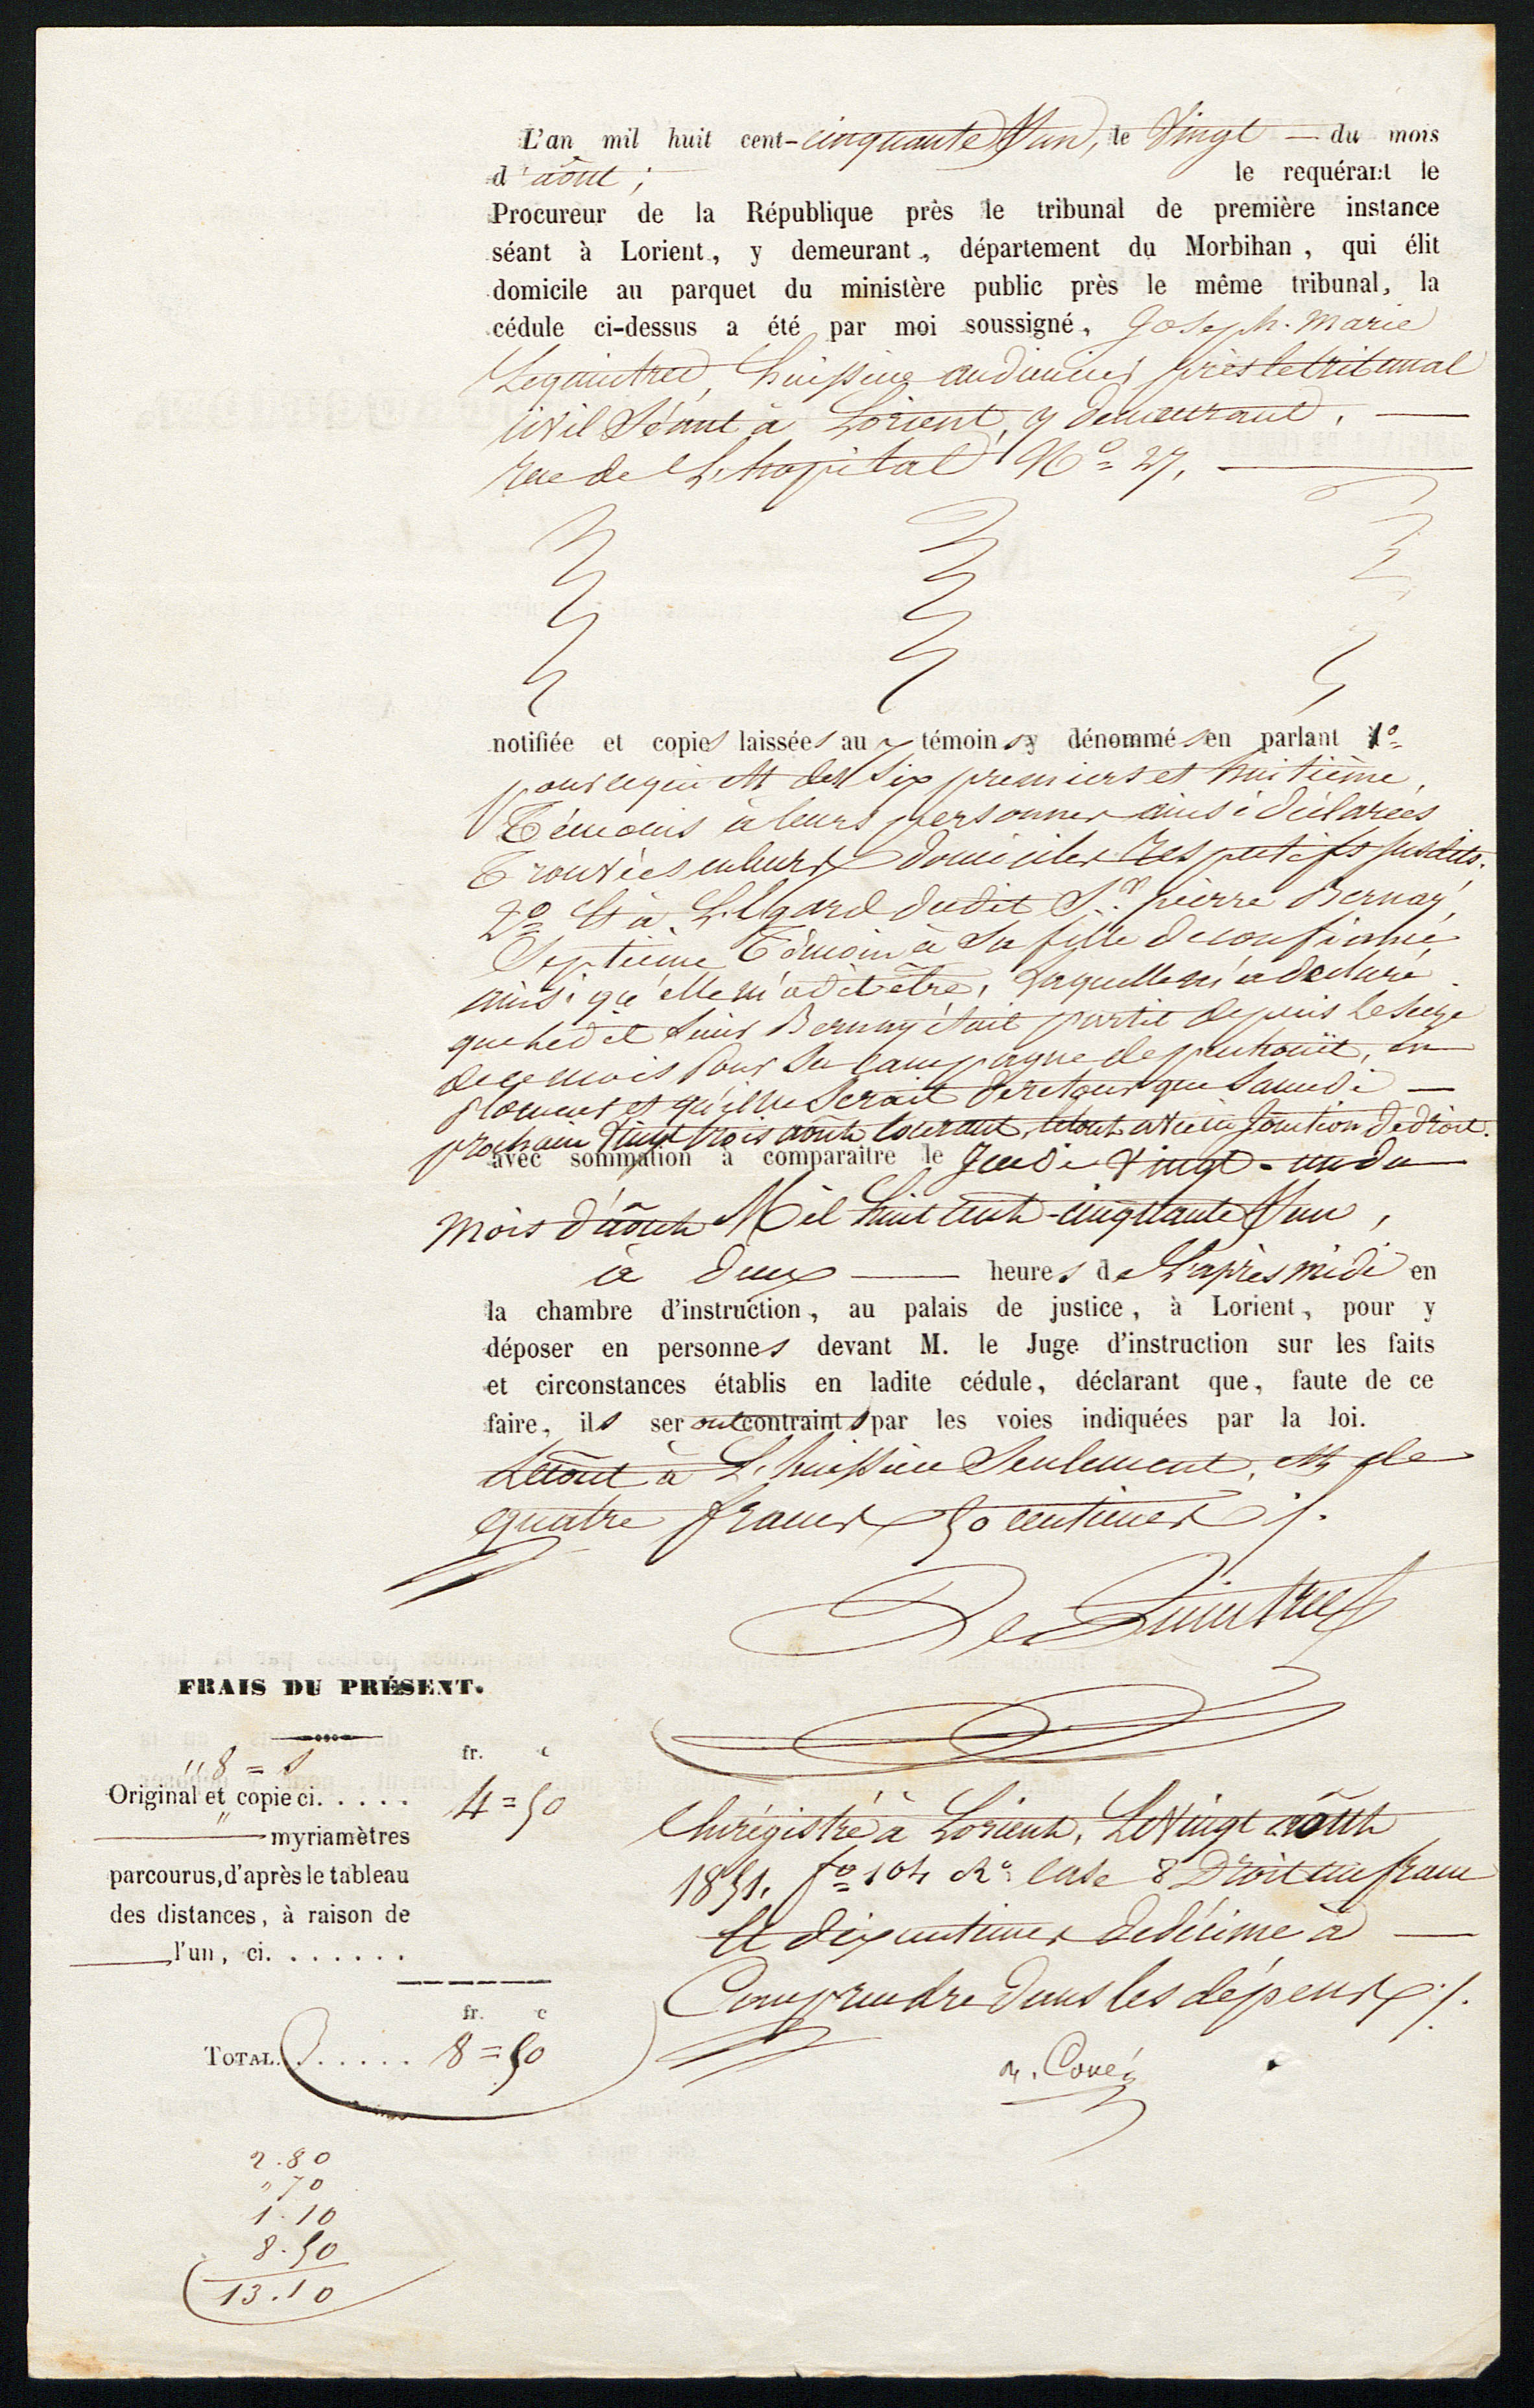 L'an mil huit cent-cinquante & un, le Vingt — du mois
d'août ; le requérant le
Procureur de la République près le tribunal de première instance
séant à Lorient, y demeurant, département du Morbihan, qui élit
domicile au parquet du ministère public près le même tribunal, la
cédule ci-dessus a été par moi soussigné, Joseph-Marie
Lequintrec, huissier audiencier près le tribunal
civil Séant à Lorient, y demeurant, —
rue de L'hopital N° 27, —
notifiée et copies laissées aux témoins y dénommés en parlant 1°
pour ce qui est des Six premiers et huitième
Témoins à leurs personnes ainsi déclarées
Trouvées en leurs domiciles respectifs susdits.
2° Et à L'égard dudit Sr. pierre Bernay,
Septième Témoin à Sa fille de confiance
ainsi qu'elle m'a dit être, Laquelle m'a déclaré
que ledit Sieur Bernay était partit depuis le seize
de ce mois pour Sa Campagne de , en
ploemeur et qu'il ne Serait de retour que Samedi —
prochain Vingt trois août courant, letout avec injonction de droit.
avec sommation à comparaitre le Jeudi Vingt-un du
mois d'août Mil huit cent-cinquante & un,
à deux — heures de L'après midi en
la chambre d'instruction, au palais de justice, à Lorient, pour y
déposer en personnes devant M. le Juge d'instruction sur les faits
et circonstances établis en ladite cédule, déclarant que, faute de ce
faire, ils seront contraints par les voies indiquées par la loi.
Le coût à L'huissier Seulement, est de
quatre francs 50 centimes ./.
Le Quintrec
FRAIS DU PRÉSENT.
" 8 = s fr. c
Original et copie ci..... 4=50
— " myriamètres
parcourus, d'après le tableau
des distances, à raison de
— l'un, ci.......
fr. c
TOTAL...... 8=50
2.80
" 70
1.10
8.50
13.10
Enrégistré à Lorient, Le Vingt août
1851, f° 104 R° case 8 Droit un franc
et dix centimes de décime à —
Comprendre dans les dépens ./.
Coué